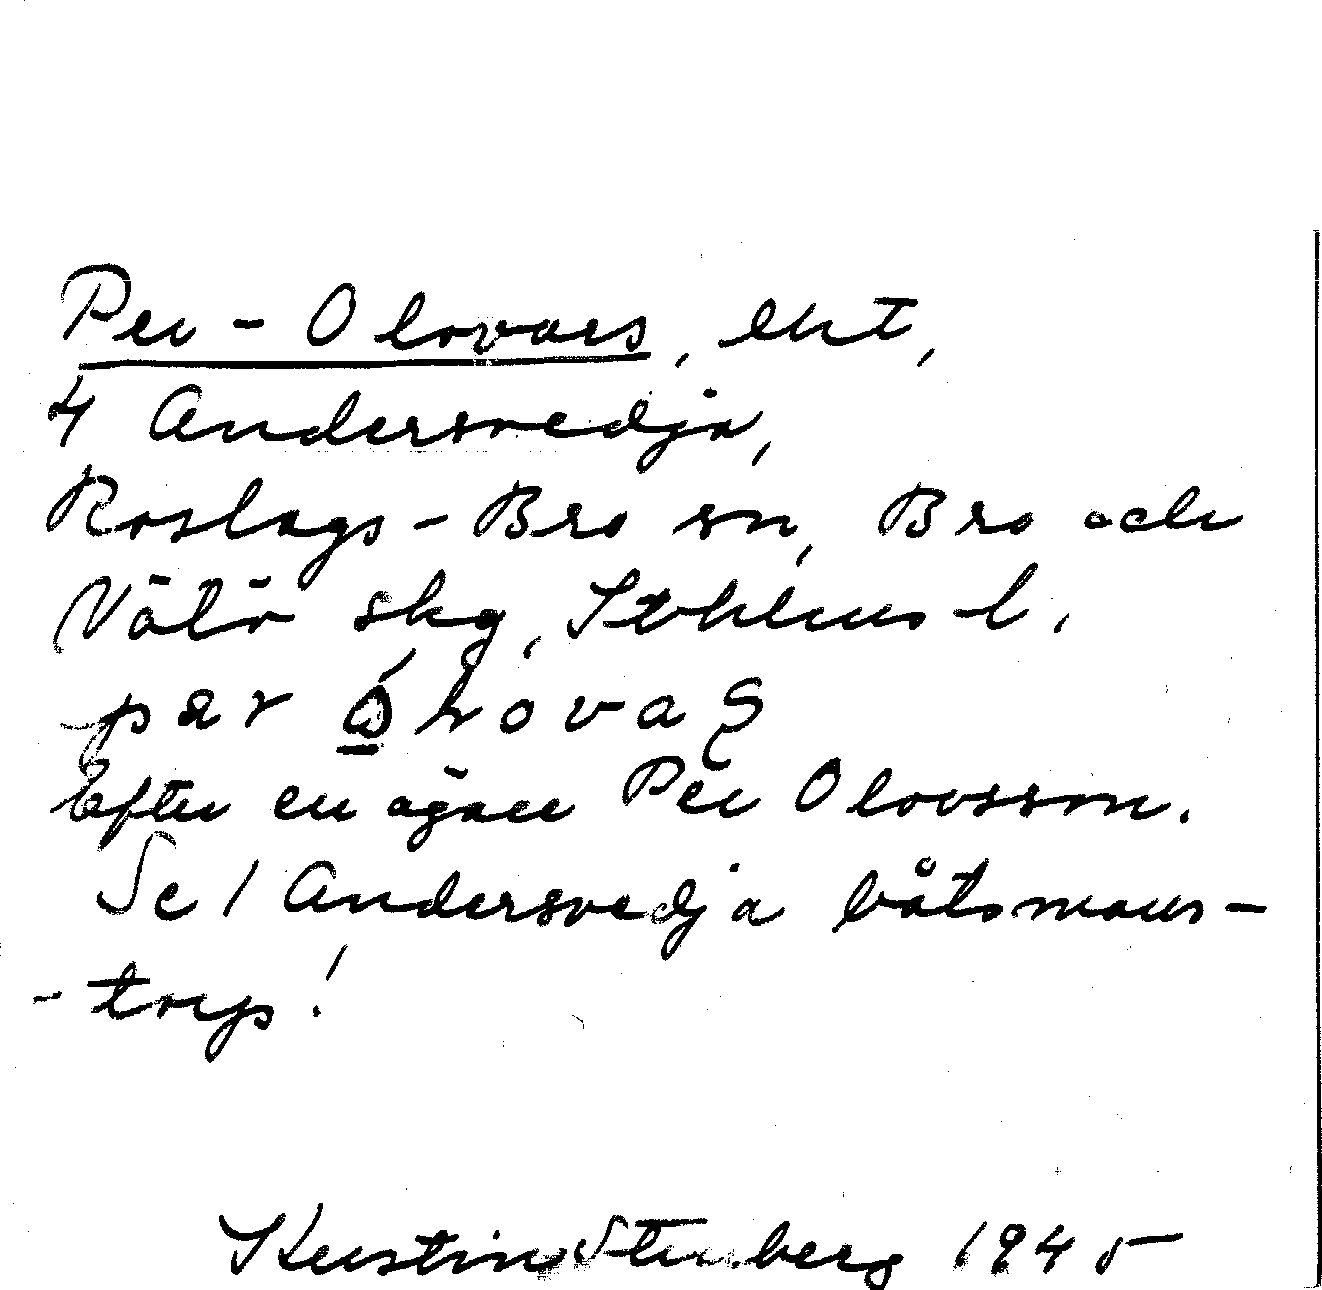 Per-Olovars, lht,
4 Andersvedja,
Roslags-Bro sn, Bro och
Vätö skg, Sthlms l.
Efter en ägare Per Olovsson.
Se 1 Andersvedja båtsmans-
-torp!
Kerstin Stenberg 1945